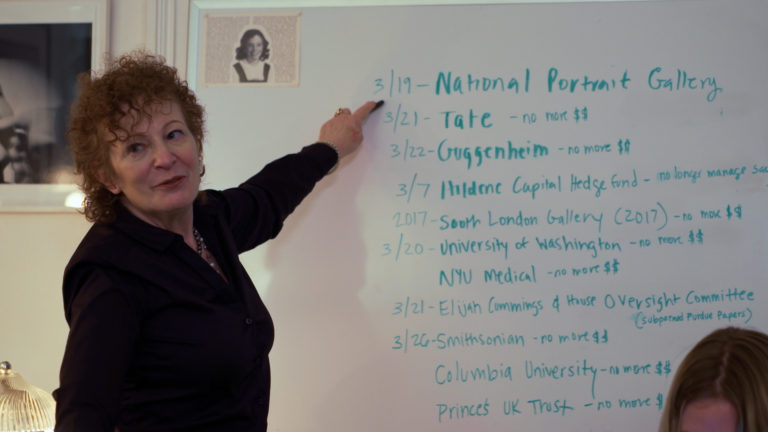 3/19 - National Portrait Gallery
3/21 - Tate - no more $$
3/22 - Guggenheim - no more $$
3/7 Hildene Capital Hedge fund - no longer manage
2017 - South London Gallery (2017) - no more $$
3/20 - University of Washington - no more $$
NYU Medical - no more $$
3/21 - Elijah Cummings & House Oversight Committee
(subpoenaed Purdue Papers)
3/26 - Smithsonian - no more $$
Columbia University - no more $$
Prince's UK Trust - no more $